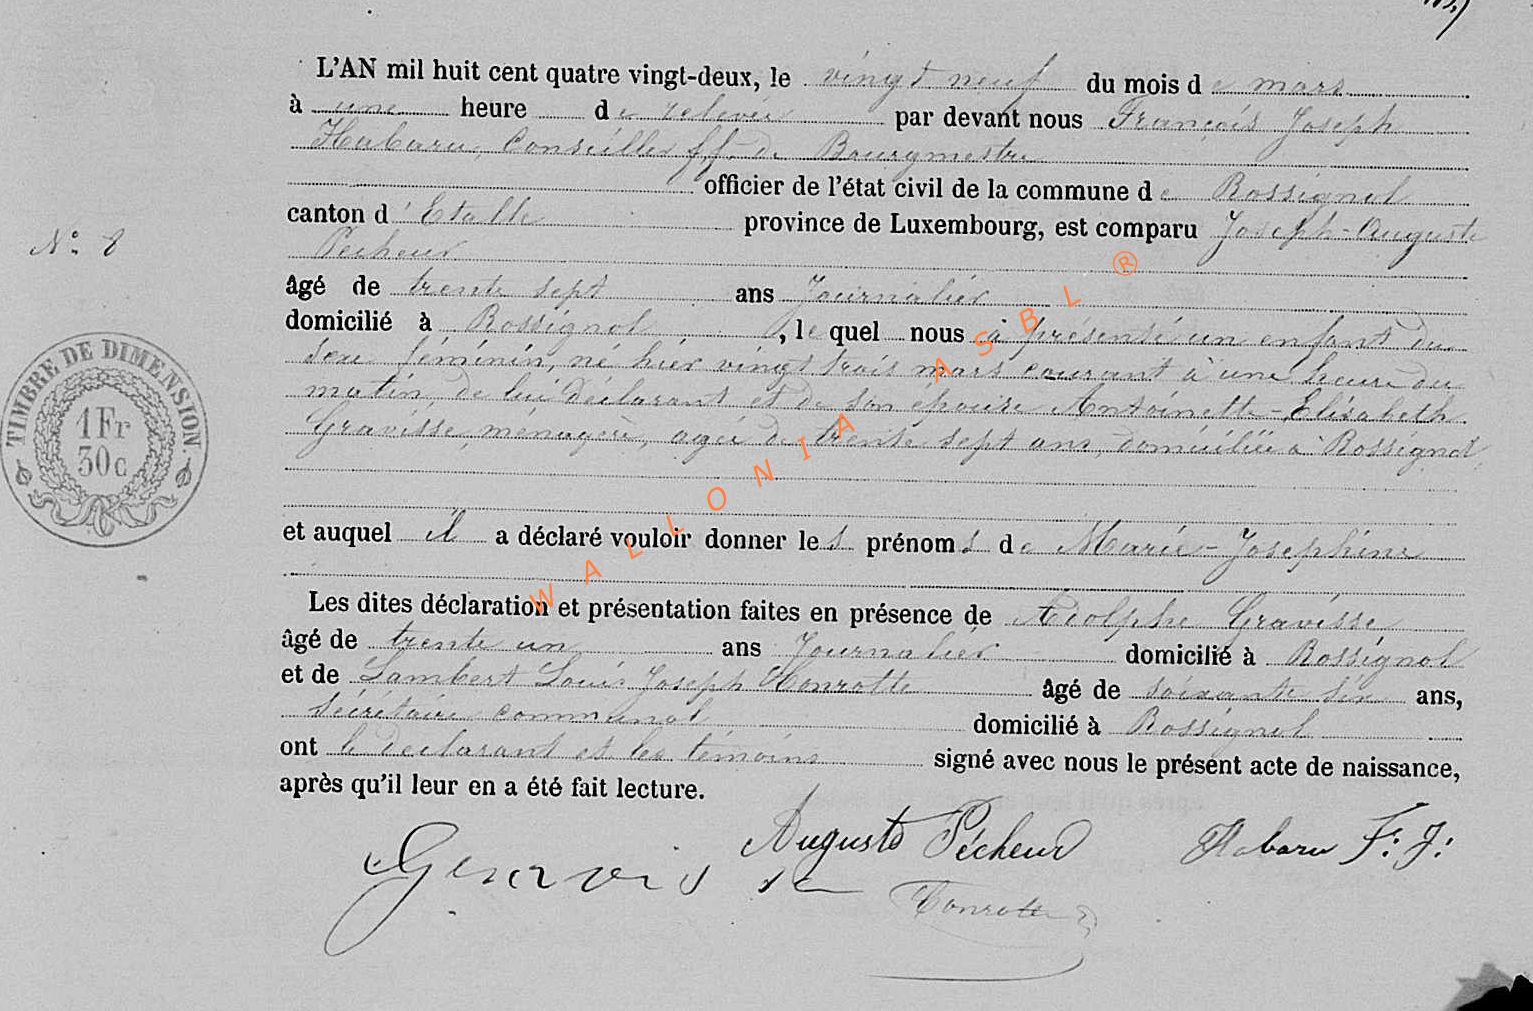 L'AN mil huit cent quatre vingt-deux, le vingt neuf du mois de mars
à une heure de relevée par devant nous François Joseph
Habaru, Conseiller ff. de Bourgmestre
officier de l'état civil de la commune de Rossignol
canton d'Etalle province de Luxembourg, est comparu Joseph-Auguste
Pécheur
N° 8
âgé de trente sept ans Journalier
domicilié à Rossignol, lequel nous à présenté un enfant du
sexe féminin, né hier vingt trois mars courant à une heure du
matin, de lui déclarant et de son épouse Antoinette-Elisabeth
Gravisse, ménagère, agée de trente sept ans, domiciliée à Rossignol,
TIMBRE DE DIMENSION.
1 Fr
30 c
et auquel il a déclaré vouloir donner les prénoms de Marie-Josephine
Les dites déclaration et présentation faites en présence de Adolphe Gravisse
âgé de trente un ans Journalier domicilié à Rossignol
et de Lambert Louis Joseph Conrotte âgé de soixante six ans,
secrétaire communal domicilié à Rossignol
ont le déclarant et les témoins signé avec nous le présent acte de naissance,
après qu'il leur en a été fait lecture.
Auguste Pécheur Habaru F. J.
Conrotte
WALLONIA ASBL ®